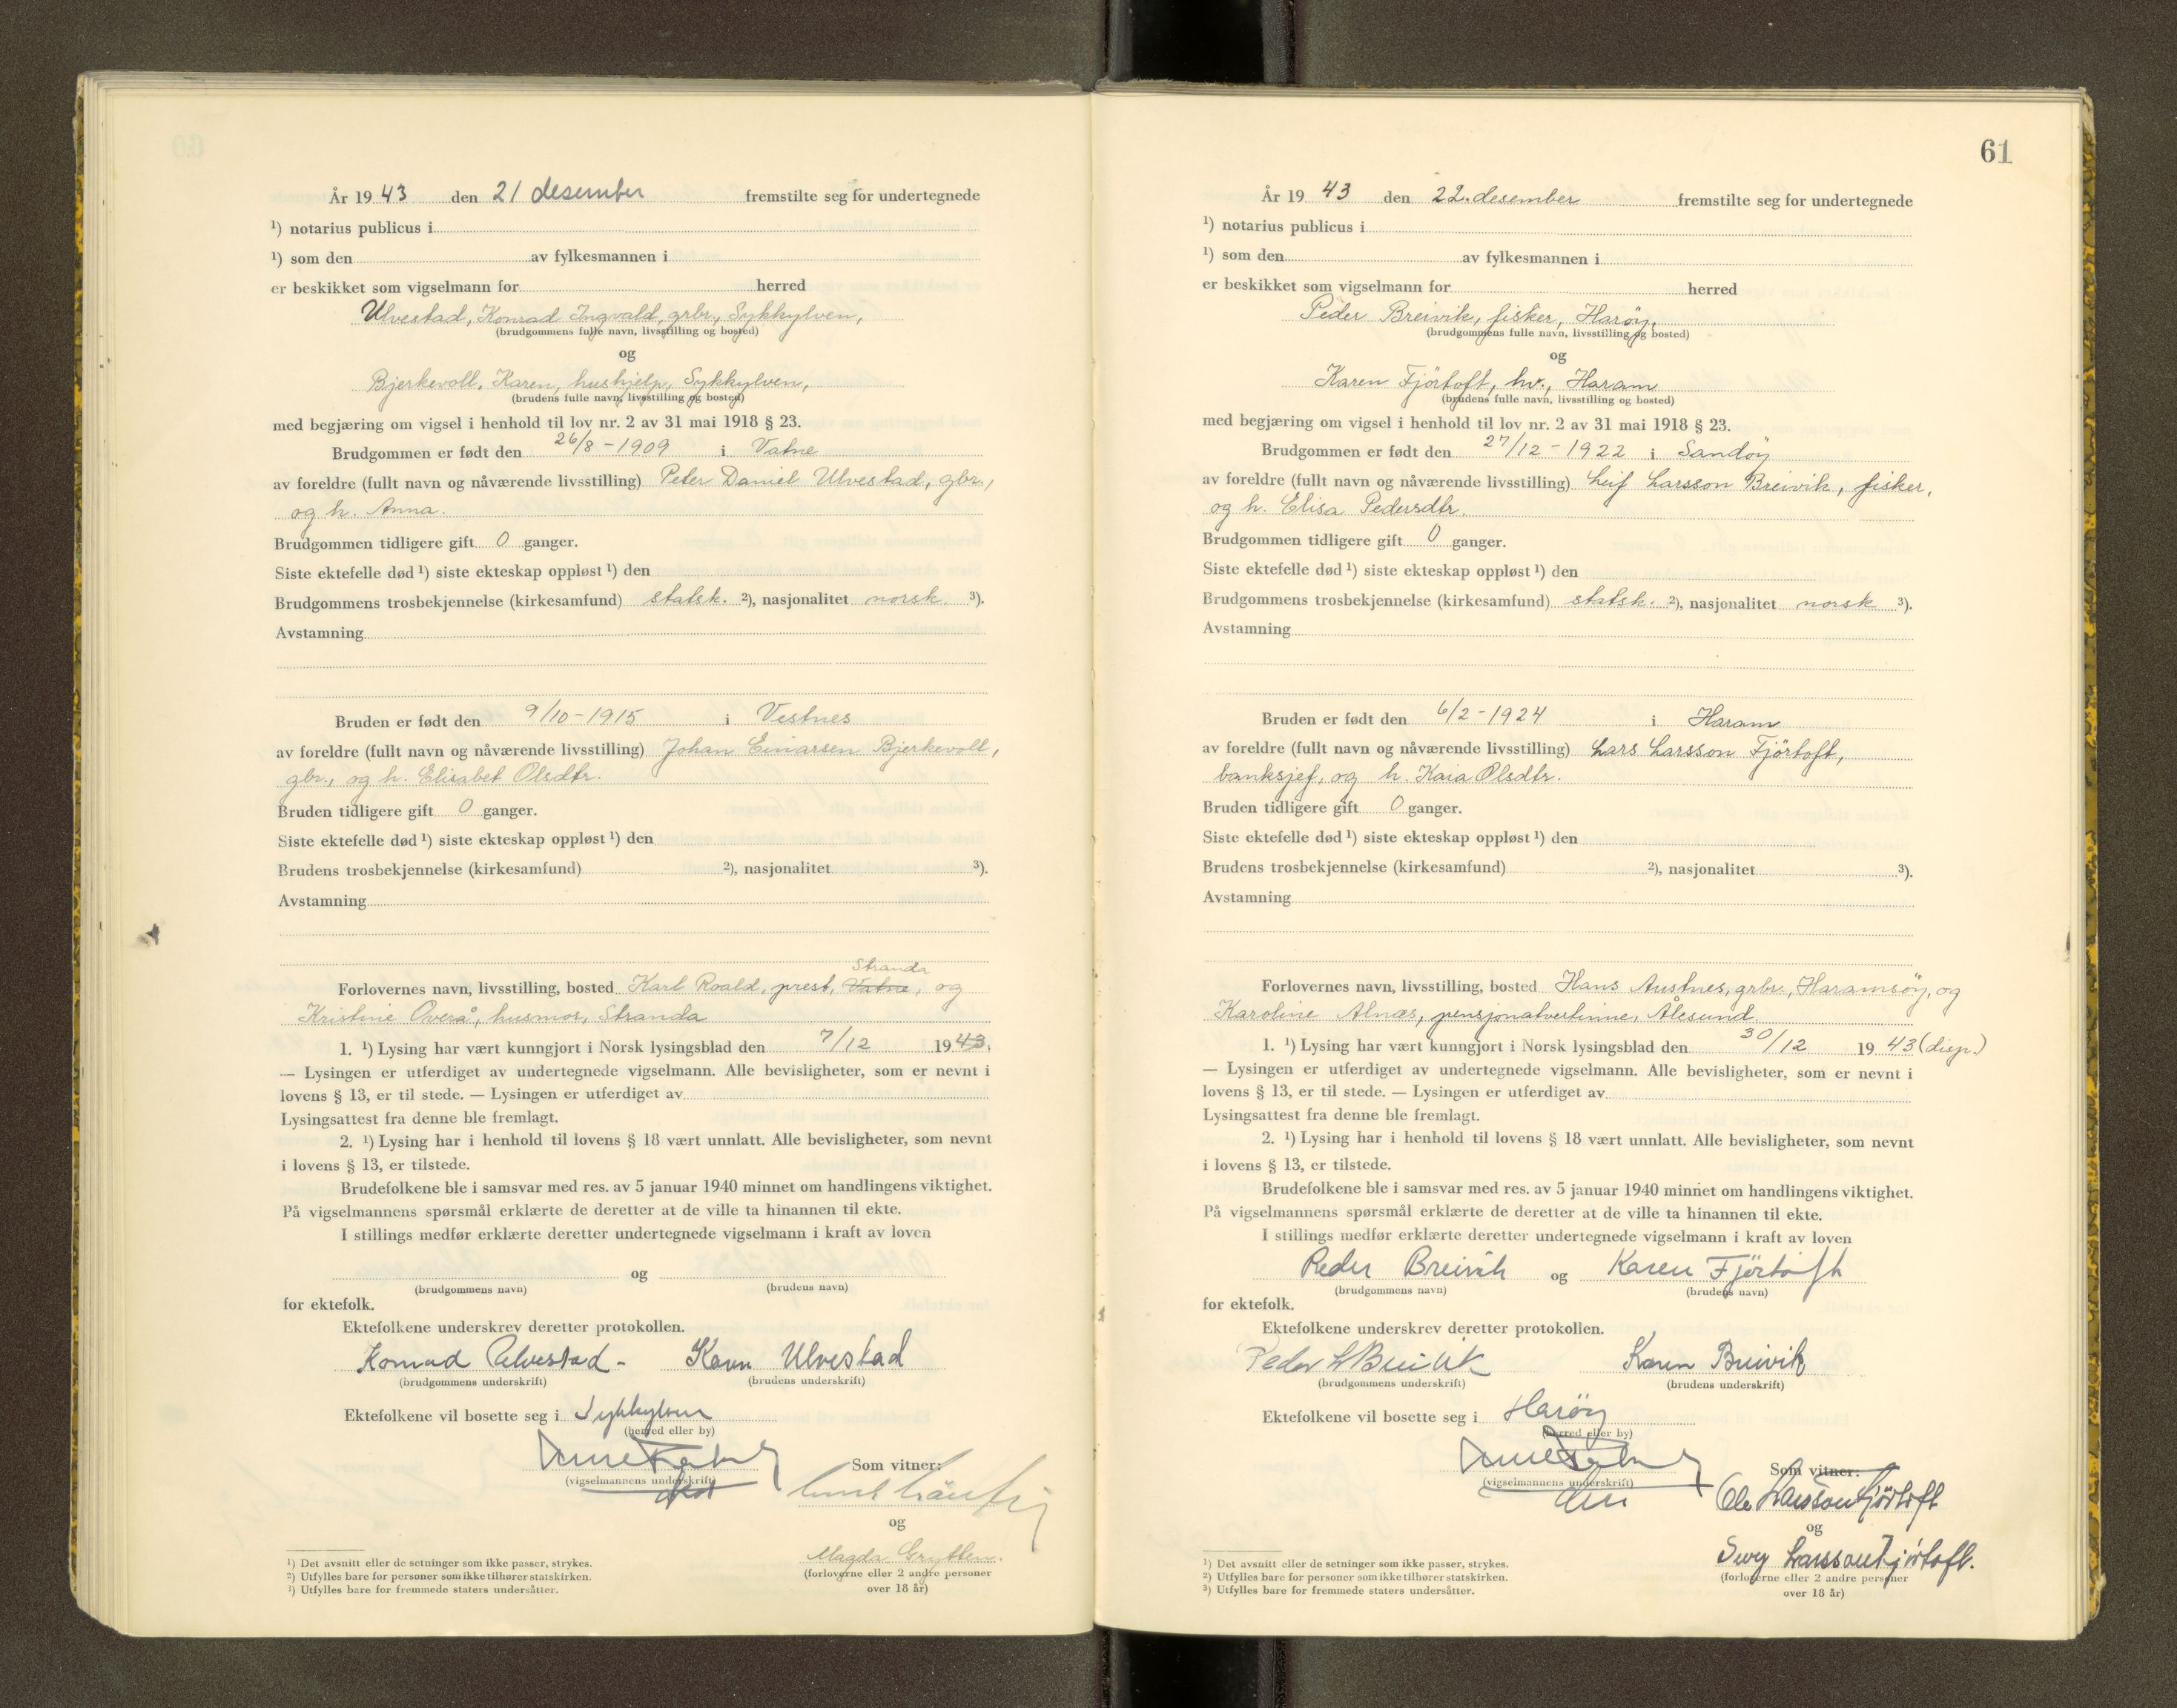 År 1943 den 21 desember fremstilte seg for undertegnede
¹) notarius publicus i
¹) som den av fylkesmannen i
er beskikket som vigselmann for herred
Ulvestad, Konrad Ingvald, grbr., Sykkylven,
(brudgommens fulle navn, livsstilling og bosted)
og
Bjerkevoll, Karen, hushjelp, Sykkylven,
(brudens fulle navn, livsstilling og bosted)
med begjæring om vigsel i henhold til lov nr. 2 av 31 mai 1918 § 23.
Brudgommen er født den 26/8-1909 i Vatne
av foreldre (fullt navn og nåværende livsstilling) Peter Daniel Ulvestad, gbr.,
og h. Anna.
Brudgommen tidligere gift 0 ganger.
Siste ektefelle død ¹) siste ekteskap oppløst ¹) den
Brudgommens trosbekjennelse (kirkesamfund) statsk. ²), nasjonalitet norsk ³).
Avstamning
Bruden er født den 9/10-1915 i Vestnes
av foreldre (fullt navn og nåværende livsstilling) Johan Einarsen Bjerkevoll,
gbr., og h. Elisabet Olsdtr.
Bruden tidligere gift 0 ganger.
Siste ektefelle død ¹) siste ekteskap oppløst ¹) den
Brudens trosbekjennelse (kirkesamfund) ²), nasjonalitet ³).
Avstamning
Stranda
Forlovernes navn, livsstilling, bosted Karl Roald, prest, Vatne, og
Kristine Overå, husmor, Stranda
1. ¹) Lysing har vært kunngjort i Norsk lysingsblad den 7/12 1943.
— Lysingen er utferdiget av undertegnede vigselmann. Alle bevisligheter, som er nevnt i
lovens § 13, er til stede. — Lysingen er utferdiget av
Lysingsattest fra denne ble fremlagt.
2. ¹) Lysing har i henhold til lovens § 18 vært unnlatt. Alle bevisligheter, som nevnt
i lovens § 13, er tilstede.
Brudefolkene ble i samsvar med res. av 5 januar 1940 minnet om handlingens viktighet.
På vigselmannens spørsmål erklærte de deretter at de ville ta hinannen til ekte.
I stillings medfør erklærte deretter undertegnede vigselmann i kraft av loven
og
(brudgommens navn) (brudens navn)
for ektefolk.
Ektefolkene underskrev deretter protokollen.
Konrad Ulvestad - Karen Ulvestad
(brudgommens underskrift) (brudens underskrift)
Ektefolkene vil bosette seg i Sykkylven
(herred eller by)
Som vitner:
(vigselmannens underskrift)
og
Magda Grytten.
(forloverne eller 2 andre personer
over 18 år)
¹) Det avsnitt eller de setninger som ikke passer, strykes.
²) Utfylles bare for personer som ikke tilhører statskirken.
³) Utfylles bare for fremmede staters undersåtter.
61
År 1943 den 22. desember fremstilte seg for undertegnede
¹) notarius publicus i
¹) som den av fylkesmannen i
er beskikket som vigselmann for herred
Peder Breivik, fisker, Harøy,
(brudgommens fulle navn, livsstilling og bosted)
og
Karen Fjörtoft, hv., Haram
(brudens fulle navn, livsstilling og bosted)
med begjæring om vigsel i henhold til lov nr. 2 av 31 mai 1918 § 23.
Brudgommen er født den 27/12-1922 i Sandöy
av foreldre (fullt navn og nåværende livsstilling) Leif Larsson Breivik, fisker,
og h. Elisa Pedersdtr.
Brudgommen tidligere gift 0 ganger.
Siste ektefelle død ¹) siste ekteskap oppløst ¹) den
Brudgommens trosbekjennelse (kirkesamfund) statsk. ²), nasjonalitet norsk ³).
Avstamning
Bruden er født den 6/2-1924 i Haram
av foreldre (fullt navn og nåværende livsstilling) Lars Larsson Fjörtoft,
banksjef, og h. Kaia Olsdtr.
Bruden tidligere gift 0 ganger.
Siste ektefelle død ¹) siste ekteskap oppløst ¹) den
Brudens trosbekjennelse (kirkesamfund) ²), nasjonalitet ³).
Avstamning
Forlovernes navn, livsstilling, bosted Hans Austnes, grbr., Haramsöy, og
Karoline Alnæs, pensjonatvertinne, Ålesund
1. ¹) Lysing har vært kunngjort i Norsk lysingsblad den 30/12 1943 (disp.)
— Lysingen er utferdiget av undertegnede vigselmann. Alle bevisligheter, som er nevnt i
lovens § 13, er til stede. — Lysingen er utferdiget av
Lysingsattest fra denne ble fremlagt.
2. ¹) Lysing har i henhold til lovens § 18 vært unnlatt. Alle bevisligheter, som nevnt
i lovens § 13, er tilstede.
Brudefolkene ble i samsvar med res. av 5 januar 1940 minnet om handlingens viktighet.
På vigselmannens spørsmål erklærte de deretter at de ville ta hinannen til ekte.
I stillings medfør erklærte deretter undertegnede vigselmann i kraft av loven
Peder Breivik og Karen Fjörtoft
(brudgommens navn) (brudens navn)
for ektefolk.
Ektefolkene underskrev deretter protokollen.
Peder L Breivik Karen Breivik
(brudgommens underskrift) (brudens underskrift)
Ektefolkene vil bosette seg i Haröy
(herred eller by)
Som vitner:
(vigselmannens underskrift)
Ole Larsson Fjörtoft
og
Larsson Fjörtoft.
(forloverne eller 2 andre personer
over 18 år)
¹) Det avsnitt eller de setninger som ikke passer, strykes.
²) Utfylles bare for personer som ikke tilhører statskirken.
³) Utfylles bare for fremmede staters undersåtter.